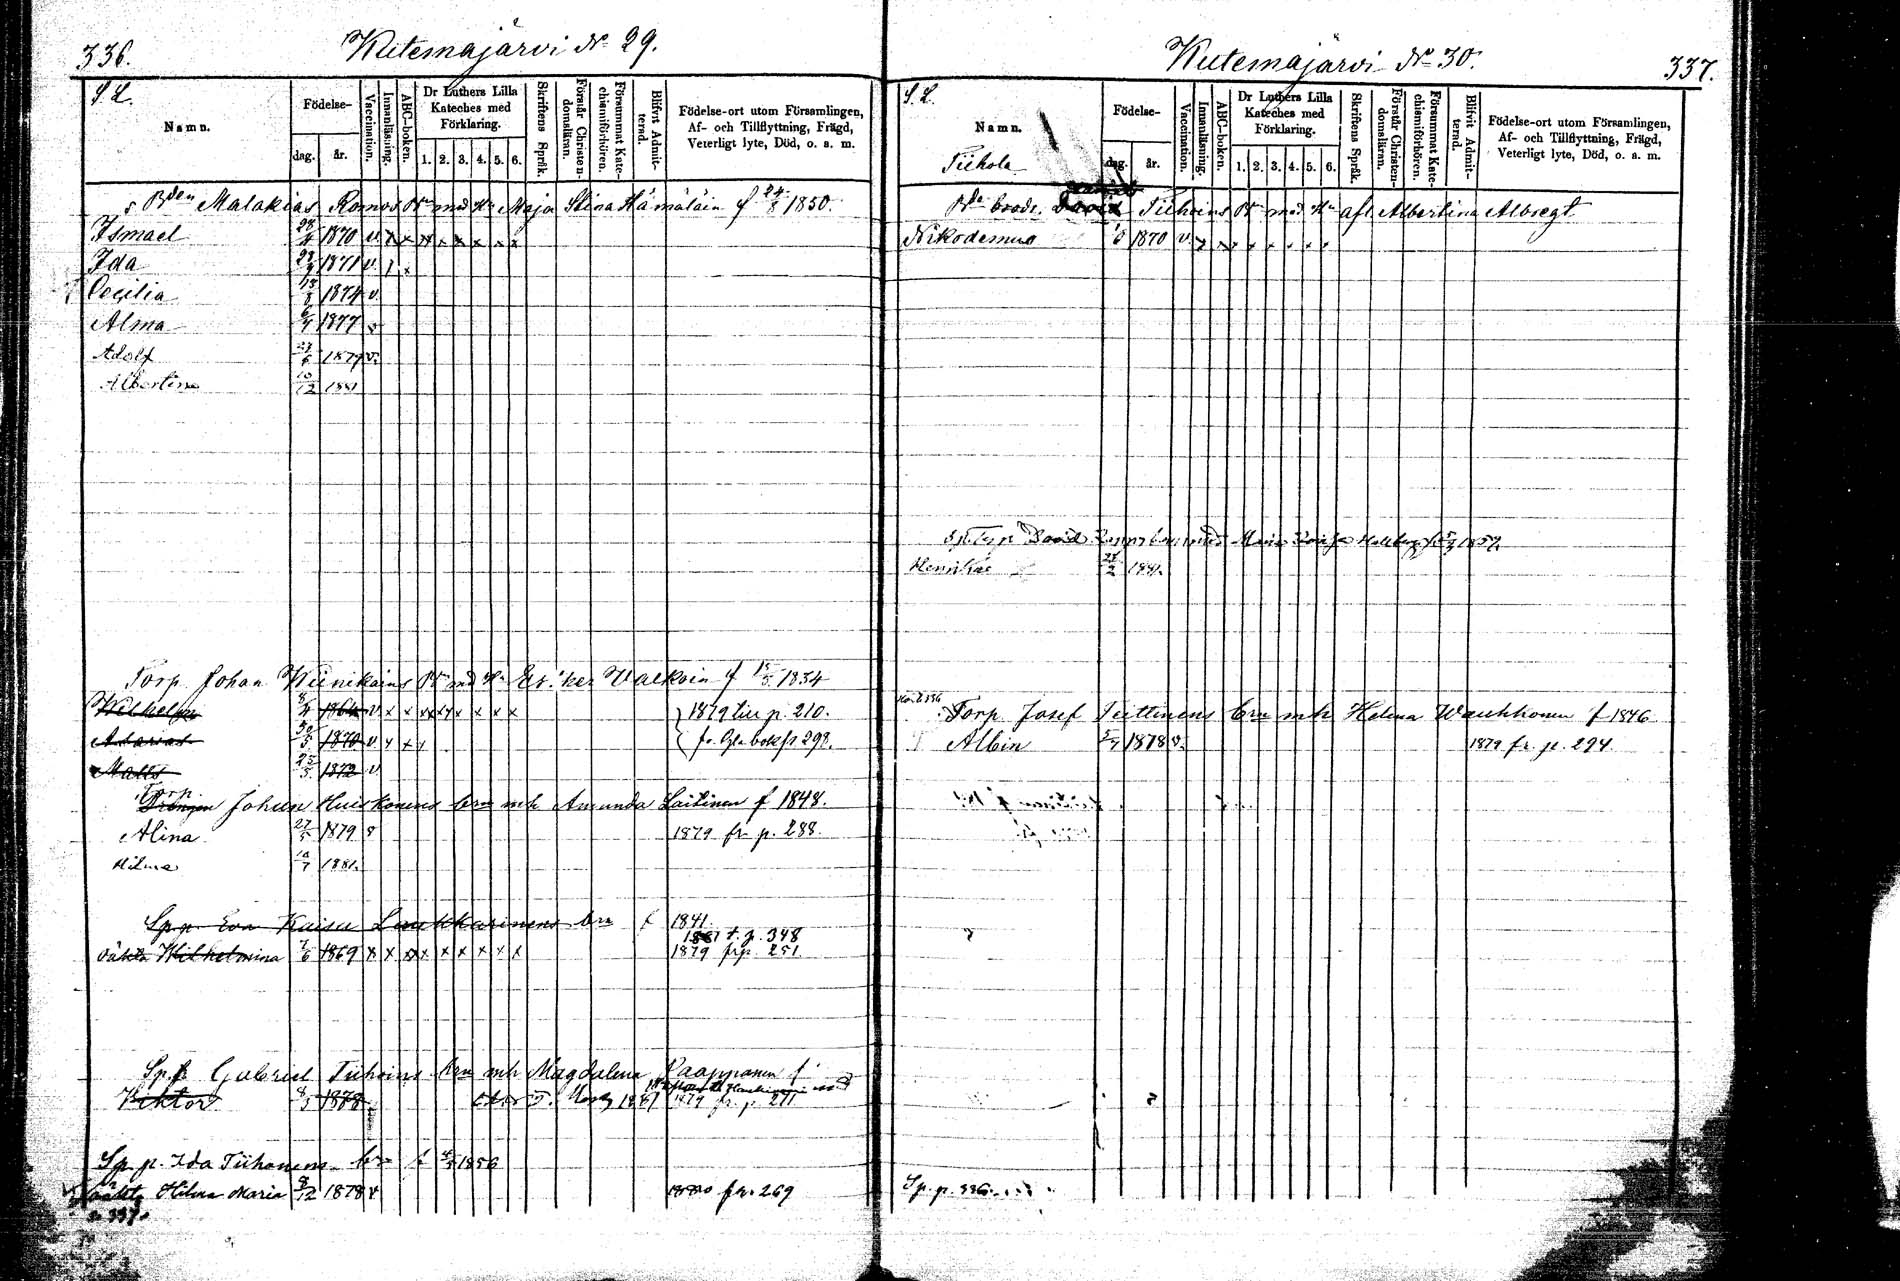 336.
Kutemajärvi No 29.
S. L.
Namn.
Födelse-
dag.
år.
Vaccination.
Innanläsning.
ABC-boken.
Dr Luthers Lilla Kateches med Förklaring.
1. 2. 3. 4. 5. 6.
Skriftens Språk.
Förstår Christendomsläran.
Försummat Katechismiförhören.
Blifvit Admitterad.
Födelse-ort utom Församlingen, Af- och Tillflyttning, Frägd, Veterligt lyte, Död, o. s. m.
Bden Malakias Romos Bn med Hu Maja Stina Hämäläin f 24/8 1850.
Ismael 1870 v x x x x x x x x
Ida 1871 v
Cecilia 13/8 1874 v.
Alma 6/4 1877 v
Adolf 1879 v.
Albertina 10/12 1881
Torp. Johan Wiinikains Bn md Hu Walkoin f 15/5 1834
Wilhelm 8/4 1864 v x x x x x x x x 1879 till p. 210.
1870 v x x fr. Gla bok p 298.
Matts 23/5 1872 v
Torp. Drängen Johan Huiskonens brn mh Amanda Laitinen f 1848.
Alina 27/5 1879 1879 fr p. 288.
Hilma 10/7 1881.
Sp.p. Eva Kaisa Laukkarinens brn f 1841.
1881 t. p. 348
Wilhelmina 7/6 1869 x x x x x x x x x 1879 fr p. 251
Sp. p. Gabriel Tiihoins brn mh Magdalena Paappanen f
Viktor 8/5 1878 1881 1879 fr. p. 271
Sp. p. Ida Tiihonens brn f 1856
Hilma Maria 8/12 1878 v 1880 fr. 269
337.
Kutemajärvi No 30.
S. L.
Namn.
Tiihola
Födelse-
dag.
år.
Vaccination.
Innanläsning.
ABC-boken.
Dr Luthers Lilla Kateches med Förklaring.
1. 2. 3. 4. 5. 6.
Skriftens Språk.
Förstår Christendomsläran.
Försummat Katechismiförhören.
Blifvit Admitterad.
Födelse-ort utom Församlingen, Af- och Tillflyttning, Frägd, Veterligt lyte, Död, o. s. m.
Bde brodr. David Tiihoins Bn med Hu afl. Albertina Albregt
Nikodemus 1870 v. x x x x x x x x
David med Maria 1852.
Henrika 1881.
Torp. Josef Teittinens brn mh Helena Wauhkonen f 1846
Albin 5/7 1878 v. 1879 fr. p. 294.
Sp. p. 336.